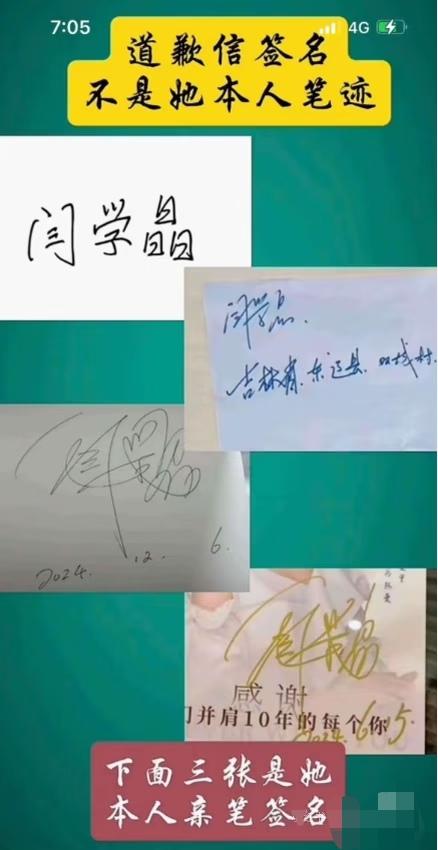 7:05
4G
道歉信签名
不是她本人笔迹
闫学晶
闫学晶.
吉林省.东辽县.双城村.
闫学晶
2024. 12. 6.
闫学晶
感谢
并肩10年的每个你
2024.6.5.
下面三张是她
本人亲笔签名